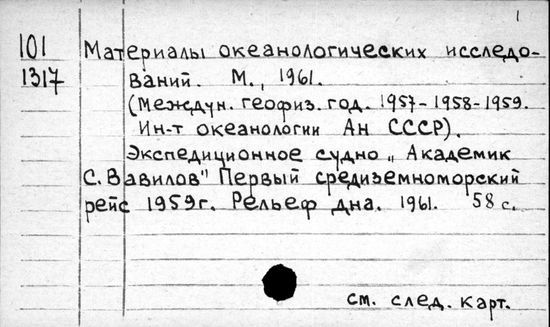 1
101 Материалы океанологических исследо-
1317 ваний. М., 1961.
(Междун. геофиз. год. 1957-1958-1959.
Ин-т океанологии Ан СССР).
Экспедиционное судно „Академик
С. Вавилов" Первый средиземноморский
рейс 1959г. Рельеф дна. 1961. 58 с.
см. след. карт.